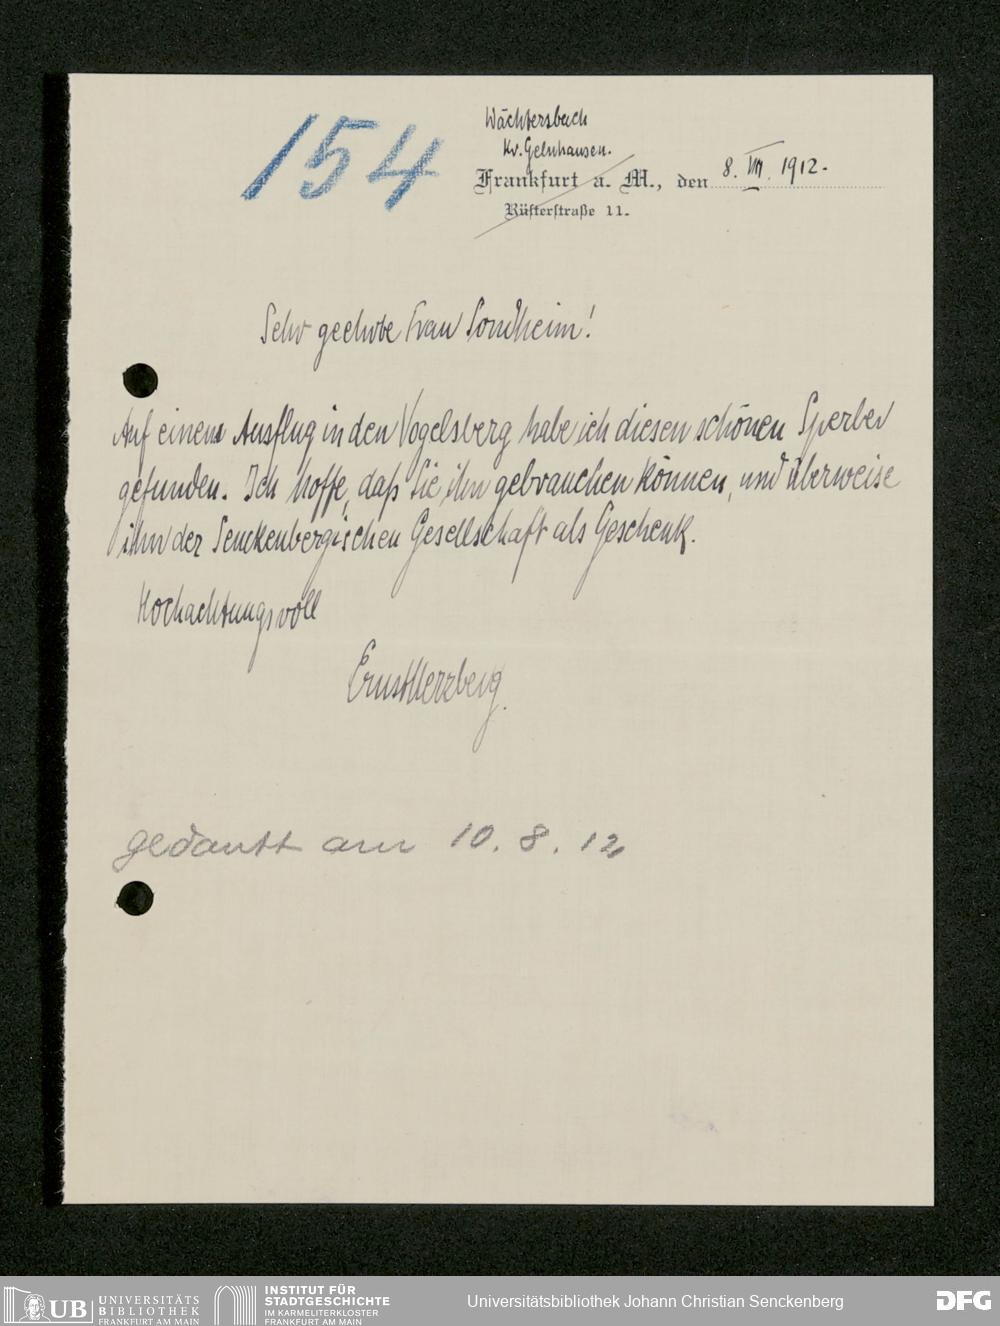 154
Wächtersbach
Kr. Gelnhausen.
Frankfurt a. M., den 8. VIII. 1912.
Rüsterstraße 11.
Sehr geehrte Frau Sondheim!
Auf einem Ausflug in den Vogelsberg habe ich diesen schönen Sperber
gefunden. Ich hoffe, daß Sie ihn gebrauchen können, und überweise
ihn der Senckenbergischen Gesellschaft als Geschenk.
Hochachtungsvoll
Ernst Herzberg.
gedankt am 10. 8. 12
UB UNIVERSITÄTS
BIBLIOTHEK
FRANKFURT AM MAIN
INSTITUT FÜR
STADTGESCHICHTE
IM KARMELITERKLOSTER
FRANKFURT AM MAIN
Universitätsbibliothek Johann Christian Senckenberg
DFG